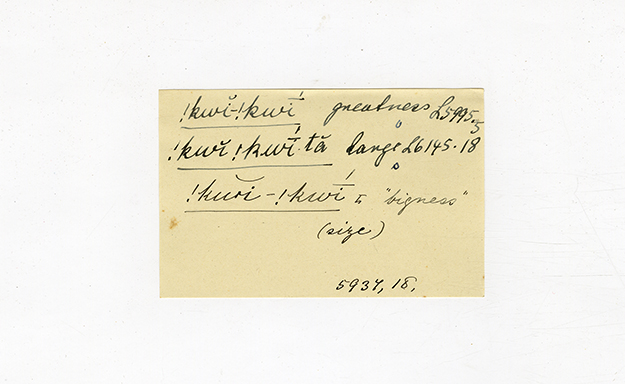 !kwĭ-!kwī́ greatness L5995.
!kwĭ !kwī́ tă large L6145.18
!kŭı̆ - !kwī́ "bigness"
(size)
5937, 18,